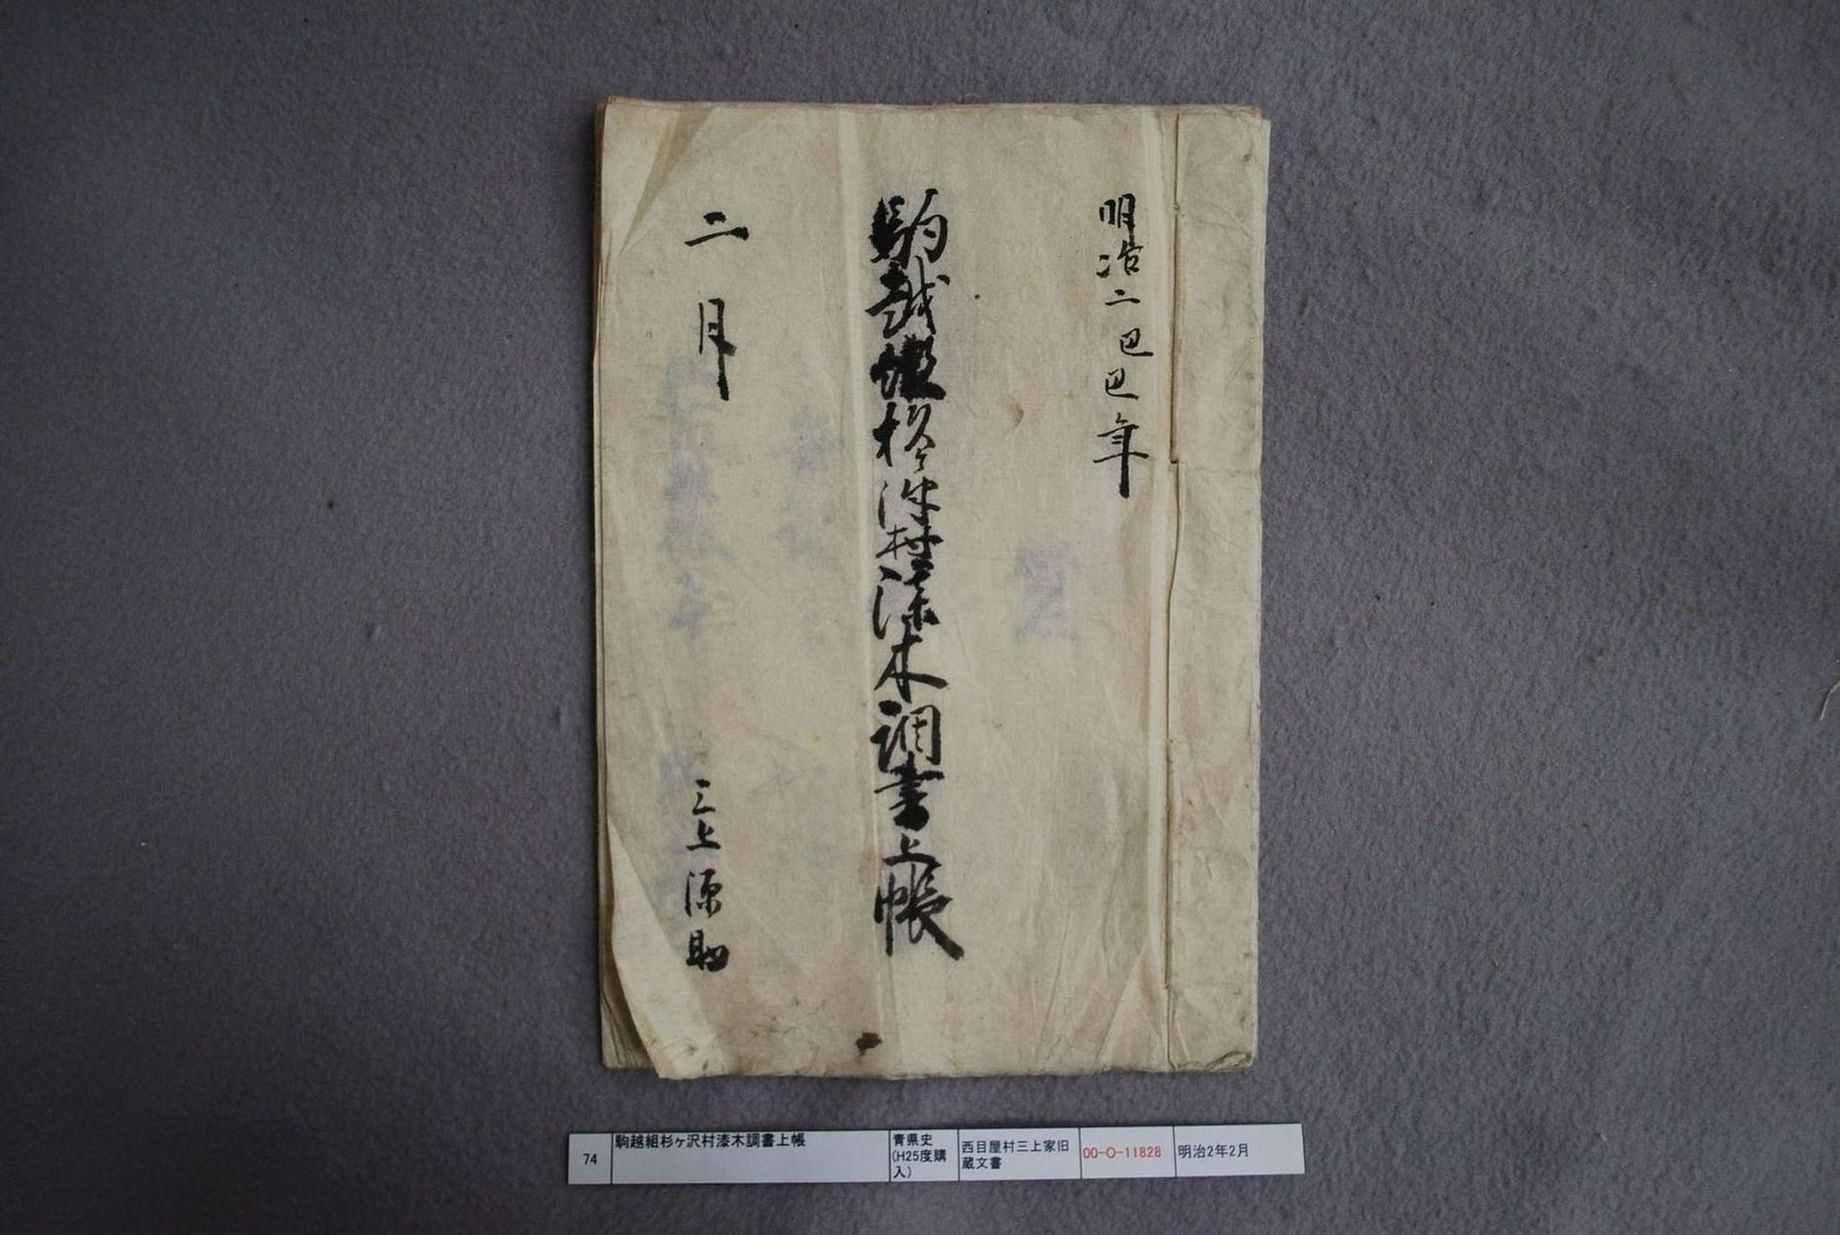 明治二己巳年
駒越組杉ヶ沢村漆木調書上帳
二月
三上源助
74
駒越組杉ヶ沢村漆木調書上帳
青県史
(H25度購
入)
西目屋村三上家旧
蔵文書
00-O-11828
明治2年2月